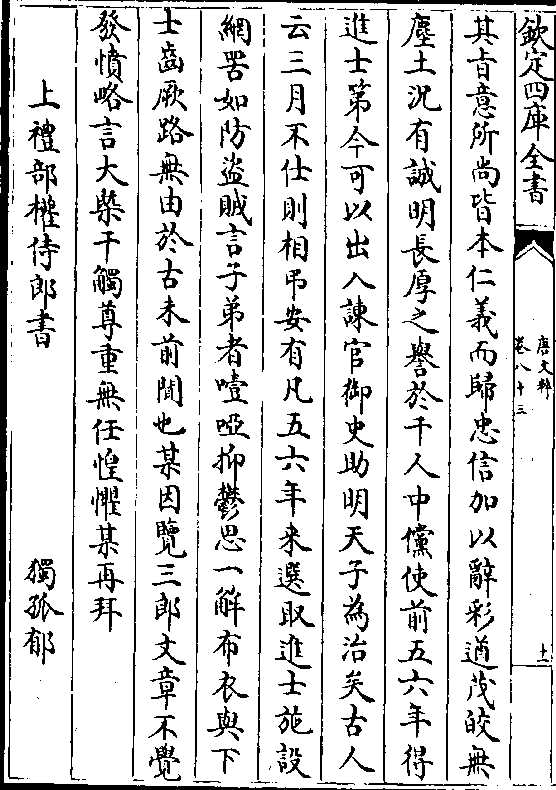 欽定四庫全書
唐文粹
卷八十三
十一
其旨意所尚皆本仁義而歸忠信加以辭彩遒茂皎無
塵土況有誠明長厚之譽於千人中儻使前五六年得
進士第今可以出入諫官御史助明天子為治矣古人
云三月不仕則相弔安有凡五六年來選取進士施設
網罟如防盗賊言子弟者噎啞抑鬱思一解布衣與下
士齒厥路無由於古未前聞也某因覽三郎文章不覺
發憤略言大槩干觸尊重無任惶懼某再拜
上禮部權侍郎書 獨孤郁